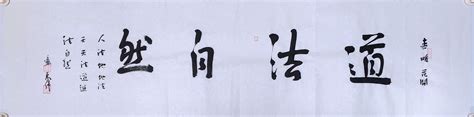 道法自然
人法地地法
天天法道道
法自然